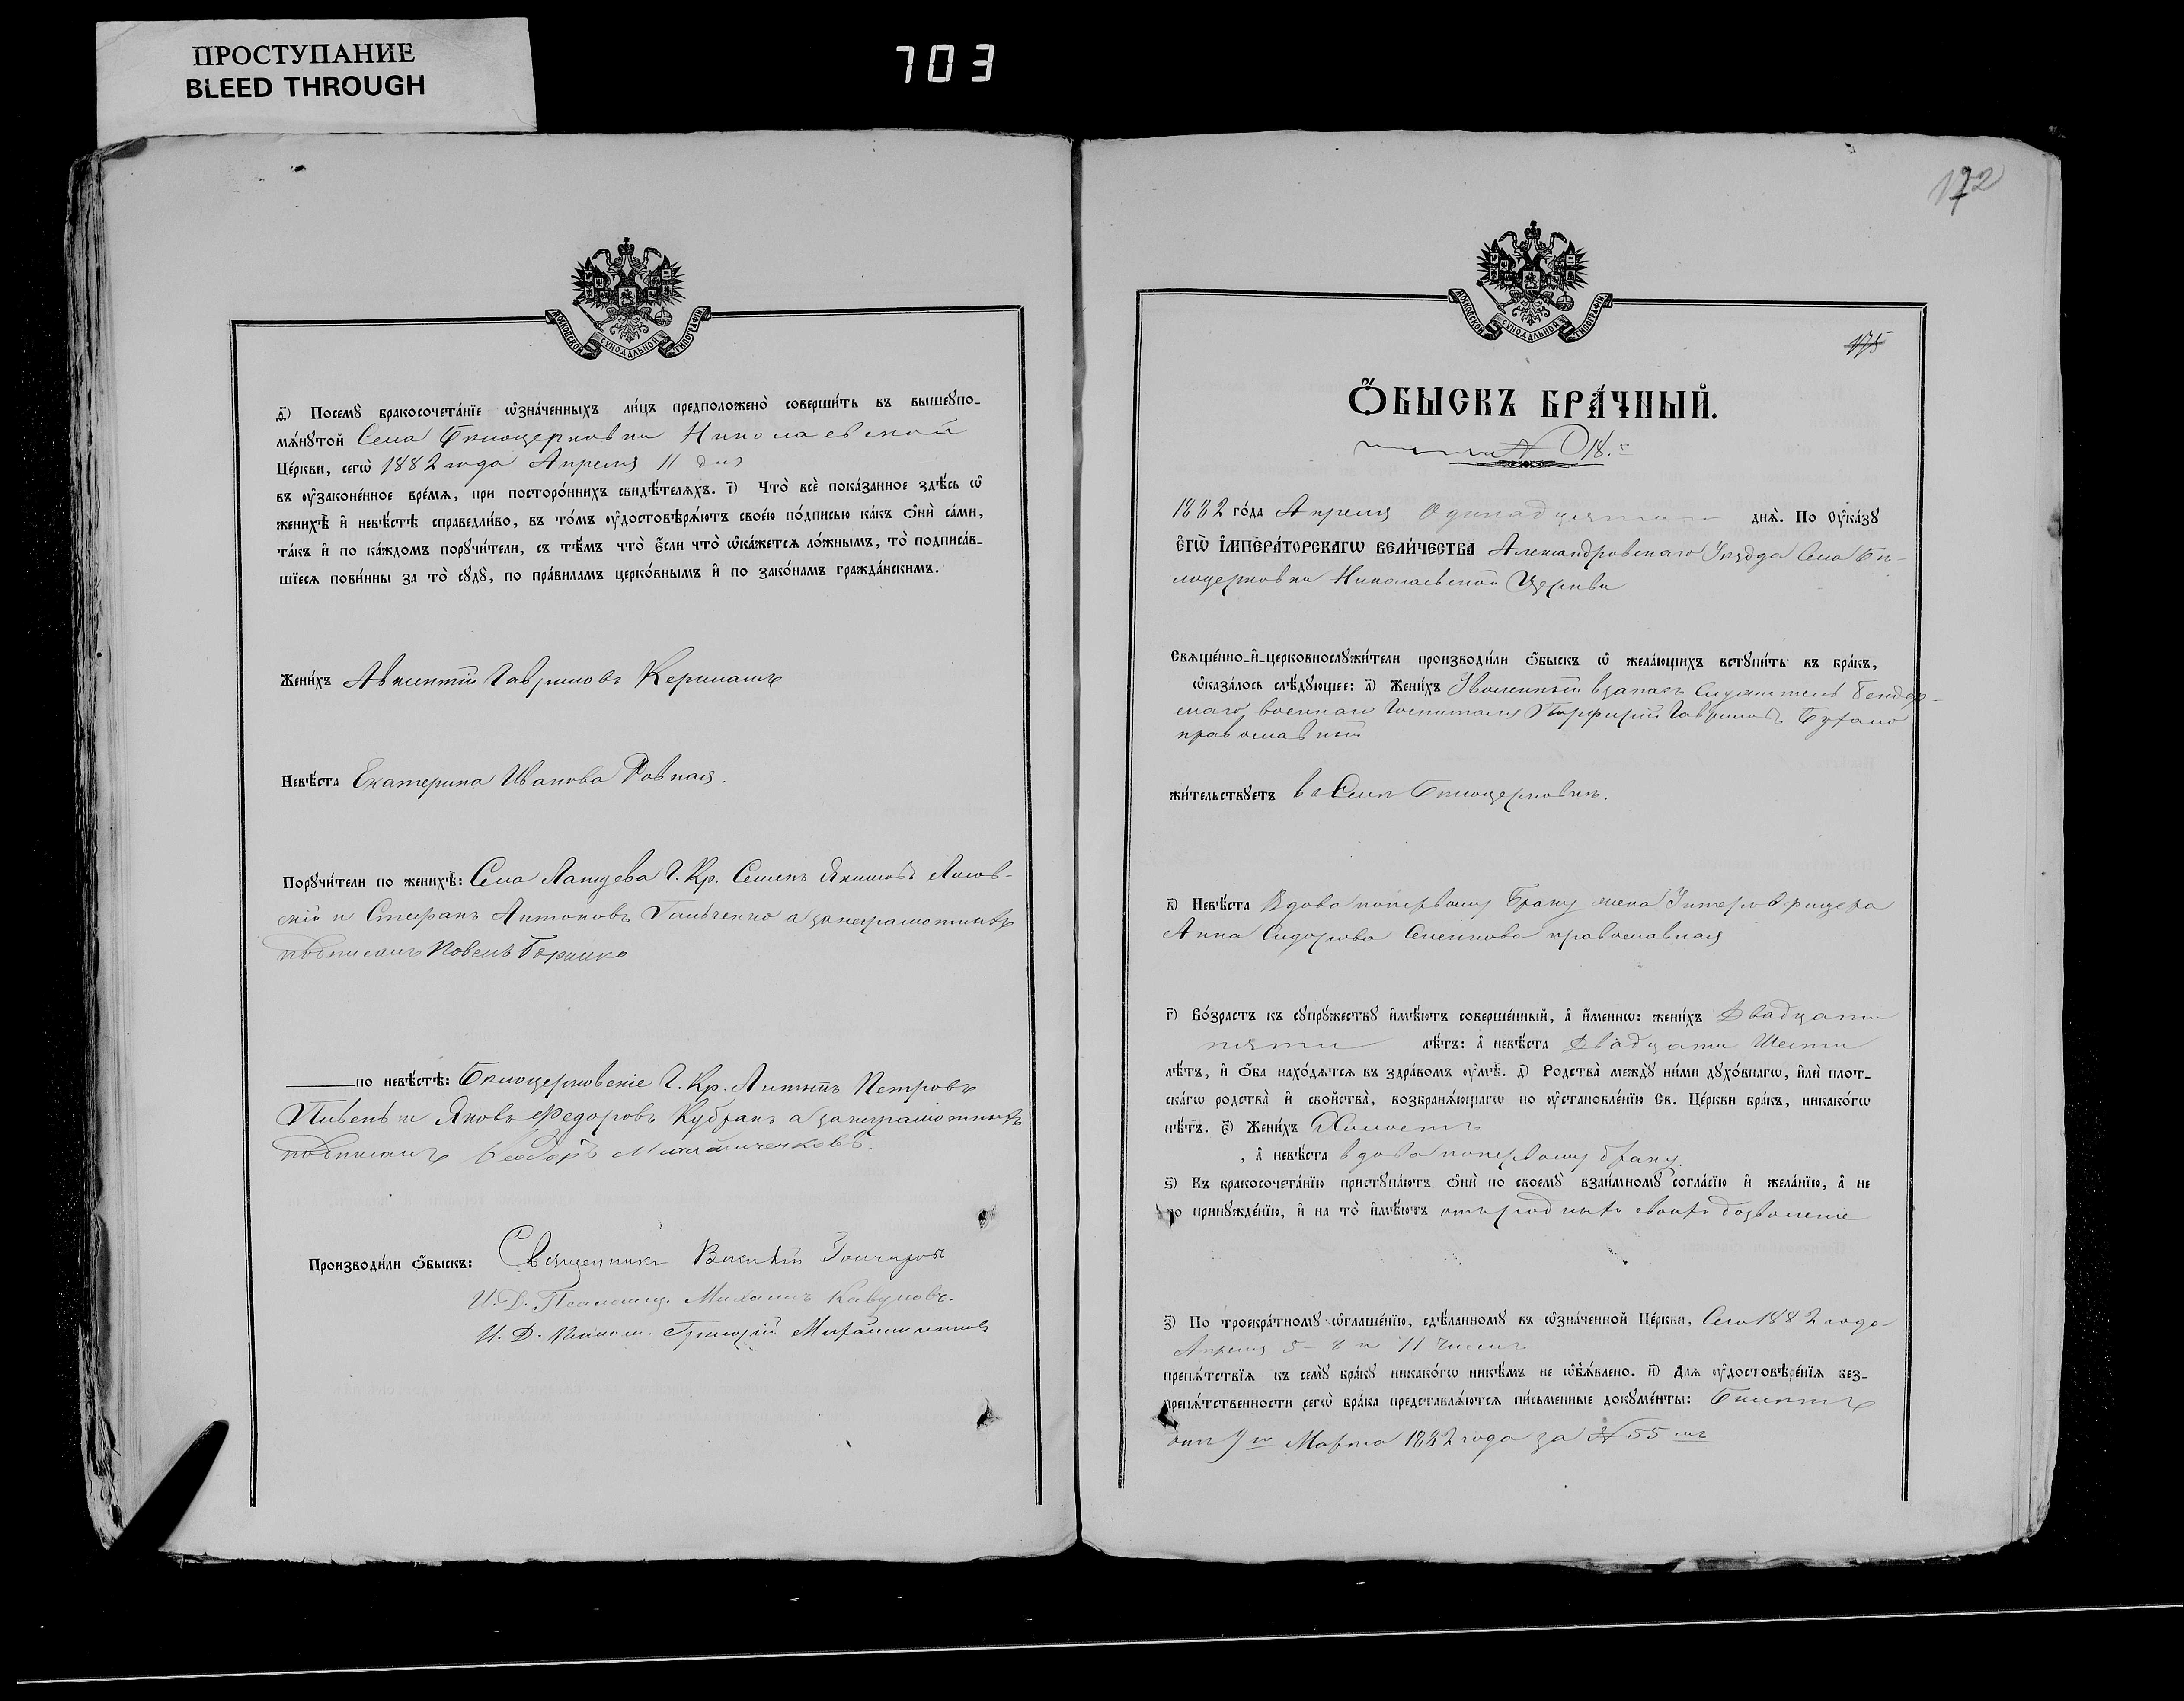 ПРОСТУПАНИЕ
BLEED THROUGH
703
МОСКОВСКОЙ СѴНОДАЛЬНОЙ ТИПОГРАФІИ
д҃і) Посемꙋ бракосочета́нїе ѡ҆зна́ченныхъ ли́цъ предположено̀ соверши́ть въ вышеꙋпо-
мѧ́нꙋтой Села Бѣлоцерковки Николаевской
Це́ркви, сегѡ̀ 1882 года Апрѣля 11 дня
въ ᲂу҆законе́нное вре́мѧ, при посторо́ннихъ свидѣ́телѧхъ. і҃) Что̀ всѐ пока́занное здѣ́сь ѡ҆
женихѣ̀ и҆ невѣ́стѣ справедли́во, въ то́мъ ᲂу҆достовѣрѧ́ютъ свое́ю по́дписью ка́къ ѻ҆нѝ са́ми,
та́къ и҆ по ка́ждомъ порꙋчи́тели, съ тѣ́мъ что̀ є҆́сли что̀ ѡ҆ка́жетсѧ ло́жнымъ, то̀ подписа́в-
шїесѧ пови́нны за то̀ сꙋдꙋ̀, по пра́виламъ церко́внымъ и҆ по зако́намъ гражда́нскимъ.
Жени́хъ Авксентій Гавриловъ Керимахъ
Невѣ́ста Екатерина Иванова Ровная.
Порꙋчи́тели по женихѣ̀: Села Г. Кр. Семенъ Лисов-
скій и Стефанъ Антоновъ Гальченко а за неграмотныхъ
подписалъ
по невѣ́стѣ: Бѣлоцерковские Г. Кр. Петровъ
Пивень и Яковъ Федоровъ а за неграмотныхъ
подписалъ Феодоръ
Производи́ли ѻ҆́быскъ: Священникъ Гончаровъ
И. Д. Псаломщ. Михаилъ Кавуновъ.
И. Д. Псалом. Григорій
172
175
МОСКОВСКОЙ СѴНОДАЛЬНОЙ ТИПОГРАФІИ
Ѻ҆́БЫСКЪ БРА́ЧНЫЙ.
№ 18.
1882 го́да Апрѣля Одинадцятаго днѧ̀. По Оу҆ка́зꙋ
Є҆ГѠ̀ І҆МПЕРА́ТОРСКАГѠ ВЕЛИ́ЧЕСТВА Александровскаго Уѣзда Села Бѣ-
лоцерковки Николаевской Церкви
Свѧще́нно-и҆-церковнослꙋжи́тели производи́ли ѻ҆́быскъ ѡ҆ жела́ющихъ встꙋпи́ть въ бра́къ,
ѡ҆каза́лось слѣ́дꙋющее: а҃) Жени́хъ Уволенный в запасъ Служитель Бендер-
скаго военнаго Госпиталя Порфирій Гавриловъ
православный
жи́тельствꙋетъ въ Селѣ Бѣлоцерковкѣ.
в҃) Невѣ́ста Вдова по первому браку жена Унтеръ офицера
Анна Сидорова православная
г҃) Во́зрастъ къ сꙋпрꙋ́жествꙋ и҆мѣ́ютъ соверше́нный, а҆ и҆́меннѡ: жени́хъ Двадцати
пяти лѣ́тъ: а҆ невѣ́ста Двадцати Шести
лѣ́тъ, и҆ ѻ҆́ба нахо́дѧтсѧ въ здра́вомъ ᲂу҆мѣ̀. д҃) Родства̀ междꙋ̀ ни́ми дꙋхо́внагѡ, и҆лѝ плот-
ска́гѡ родства̀ и҆ свойства̀, возбранѧ́ющагѡ по ᲂу҆становле́нїю Св. Це́ркви бра́къ, никако́гѡ
нѣ́тъ. є҃) Жени́хъ Холостъ
, а҆ невѣ́ста вдова по первому браку.
ѕ҃) Къ бракосочета́нїю пристꙋпа́ютъ ѻ҆нѝ по своемꙋ̀ взаи́мномꙋ согла́сїю и҆ жела́нїю, а҆ не
по принꙋжде́нїю, и҆ на то̀ и҆мѣ́ютъ отъ родныхъ своихъ дозволеніе
з҃) По троекра́тномꙋ ѡ҆глаше́нїю, сдѣ́ланномꙋ въ ѡ҆зна́ченной Це́ркви, Сего 1882 года
Апрѣля 5 - 8 и 11 числъ
препѧ́тствїѧ къ семꙋ̀ бра́кꙋ никако́гѡ никѣ́мъ не ѡ҆б̾ѧ́влено. и҃) Длѧ ᲂу҆достовѣре́нїѧ без-
препѧ́тственности сегѡ̀ бра́ка представлѧ́ютсѧ пи́сьменные докꙋме́нты: Билетъ
отъ 9го Марта 1882 года за № 55 мъ